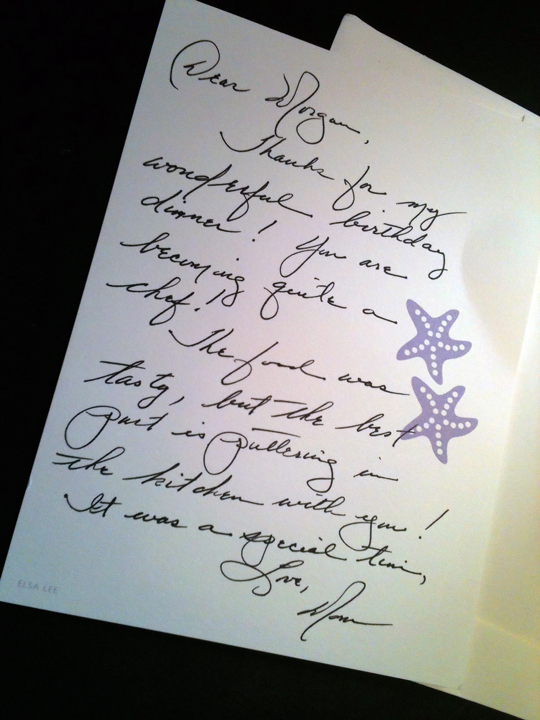 Dear Morgan,
Thanks for my
wonderful birthday
dinner! You are
becoming quite a
chef!!
The food was
tasty, but the best
part is puttering in
the kitchen with you!
It was a special time,
Love,
Mom
ELSA LEE